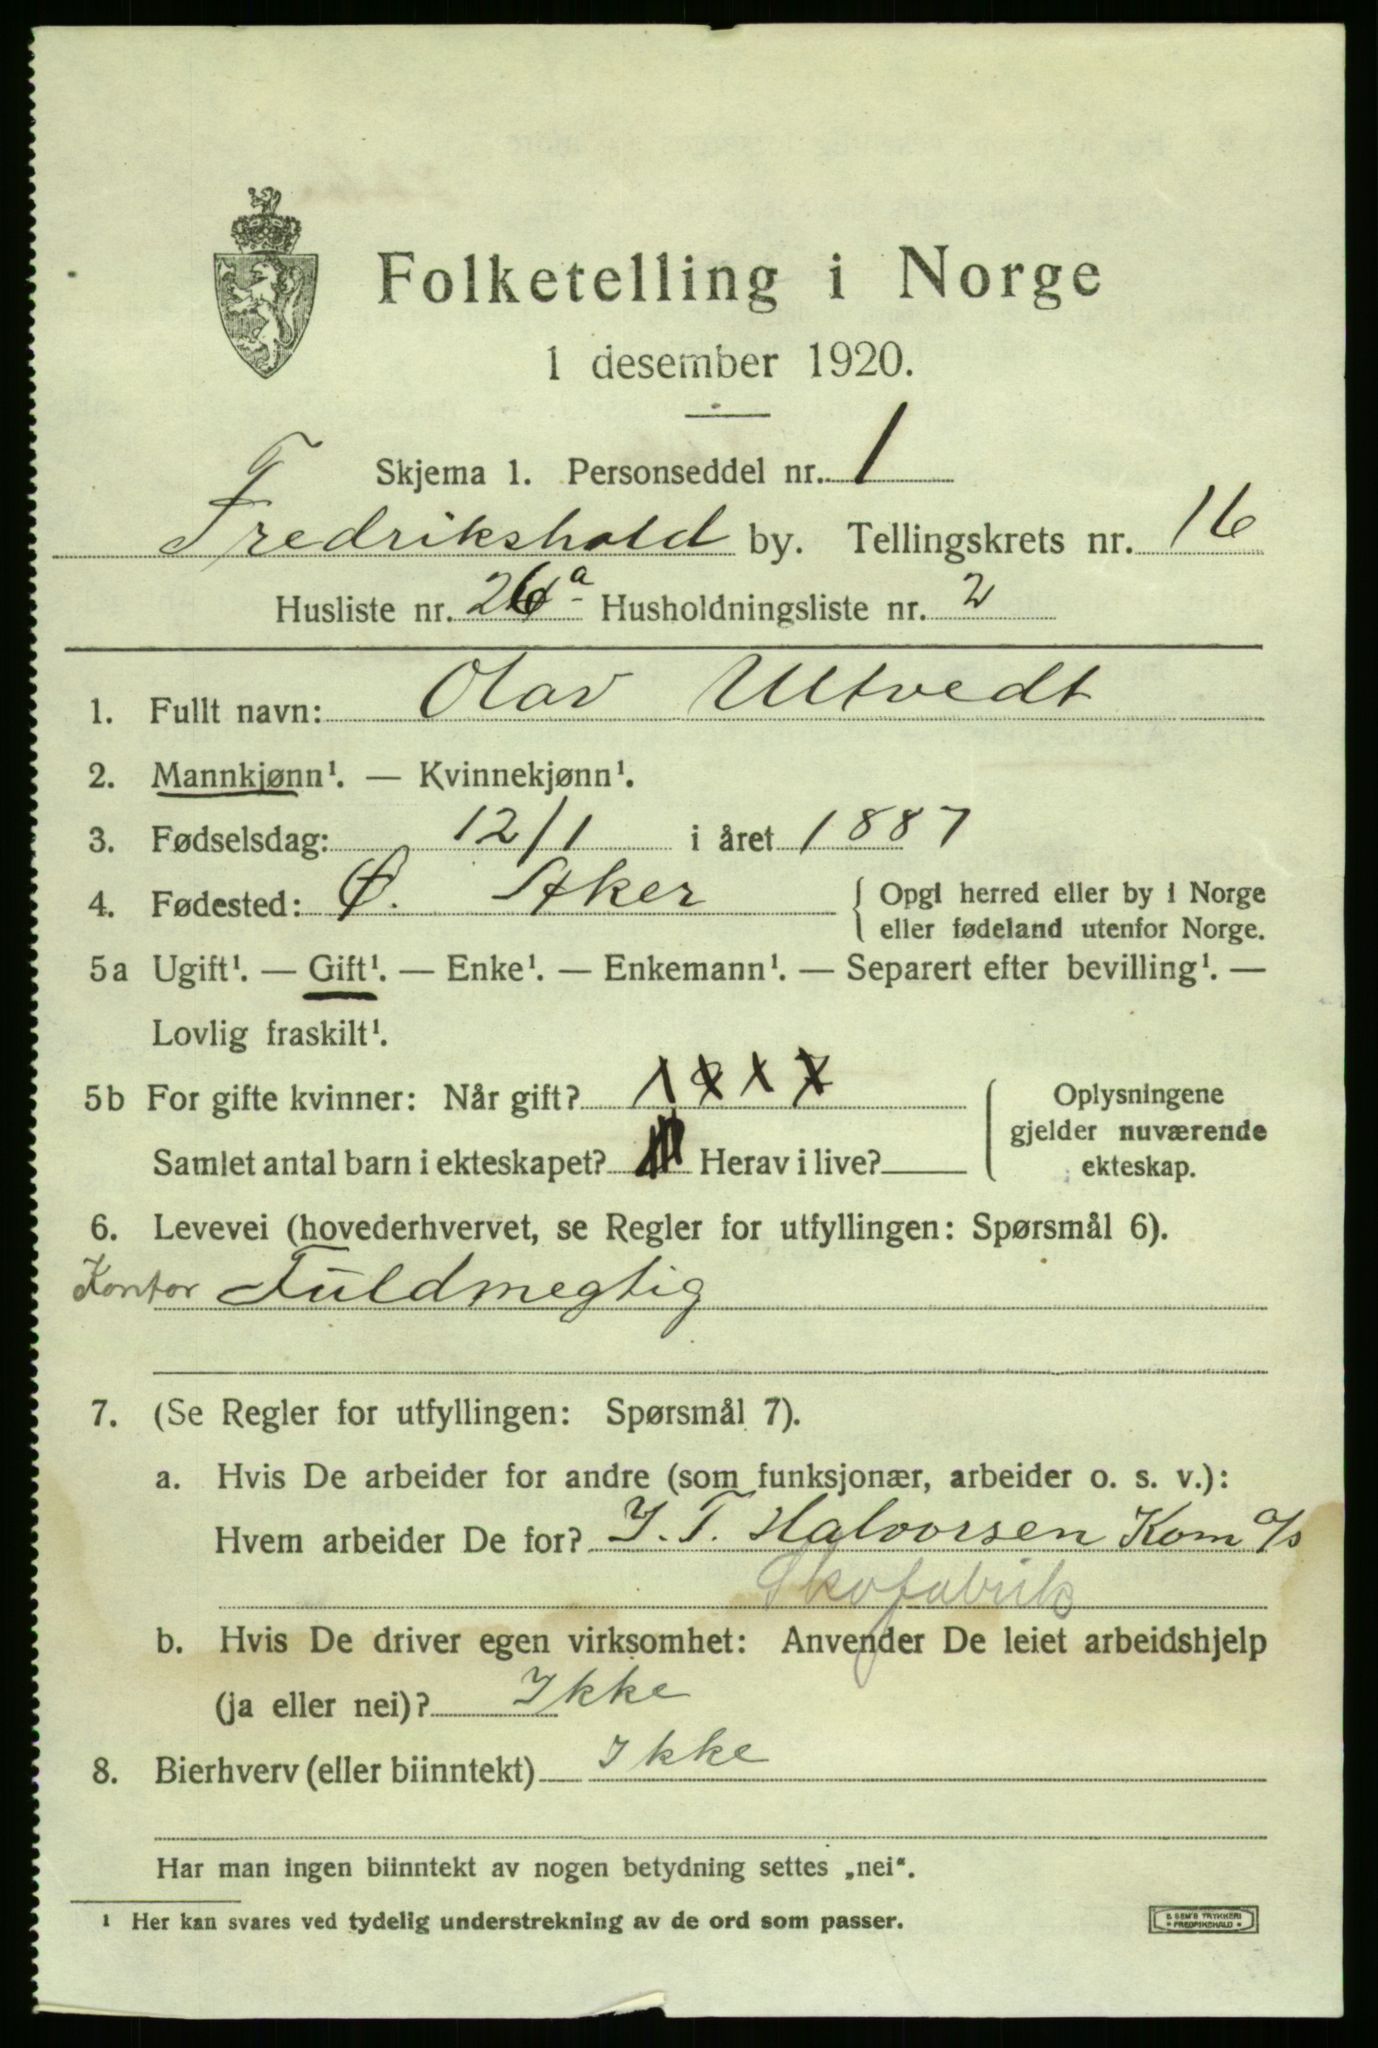 Folketelling i Norge
1 desember 1920.
Skjema 1. Personseddel nr. 1
Fredrikshald by. Tellingskrets nr. 16
Husliste nr. 26a Husholdningsliste nr. 2
1. Fullt navn: Olav Ultvedt
2. Mannkjønn¹. — Kvinnekjønn¹.
3. Fødselsdag: 12/1 i året 1887
4. Fødested: Ø. Aker { Opgi herred eller by i Norge
eller fødeland utenfor Norge.
5a Ugift¹. — Gift¹. — Enke¹. — Enkemann¹. — Separert efter bevilling¹. —
Lovlig fraskilt¹.
5b For gifte kvinner: Når gift? Oplysningene
gjelder nuværende
Samlet antal barn i ekteskapet? Herav i live? ekteskap.
6. Levevei (hovederhvervet, se Regler for utfyllingen: Spørsmål 6).
Kontor Fuldmegtig
7. (Se Regler for utfyllingen: Spørsmål 7).
a. Hvis De arbeider for andre (som funksjonær, arbeider o. s. v.):
Hvem arbeider De for? J. T. Halvorsen Kom a/s
Skofabrik
b. Hvis De driver egen virksomhet: Anvender De leiet arbeidshjelp
(ja eller nei)? Ikke
8. Bierhverv (eller biinntekt) Ikke
Har man ingen biinntekt av nogen betydning settes „nei“.
¹ Her kan svares ved tydelig understrekning av de ord som passer.
E. SEM'S TRYKKERI
FREDRIKSHALD